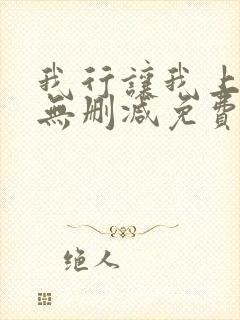 我行讓我上
無刪減免費
绝人